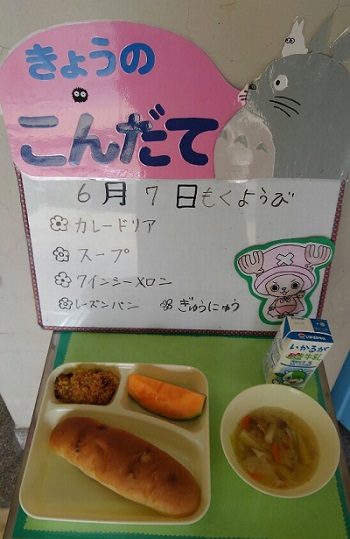 きょうの
こんだて
6月7日もくようび
カレードリア
スープ
クインシーメロン
レーズンパン ぎゅうにゅう
いかるが
牛乳